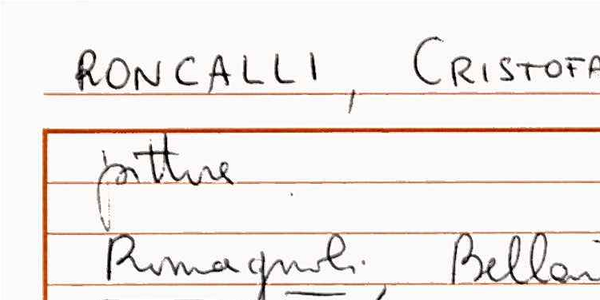 RONCALLI, CRISTOFA
pitture
Romagnoli. Bellori